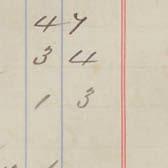 47
34
13